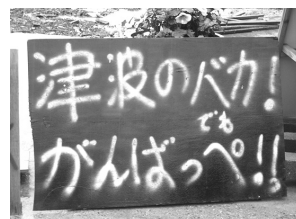 津波のバカ!
でも
がんばっぺ!!